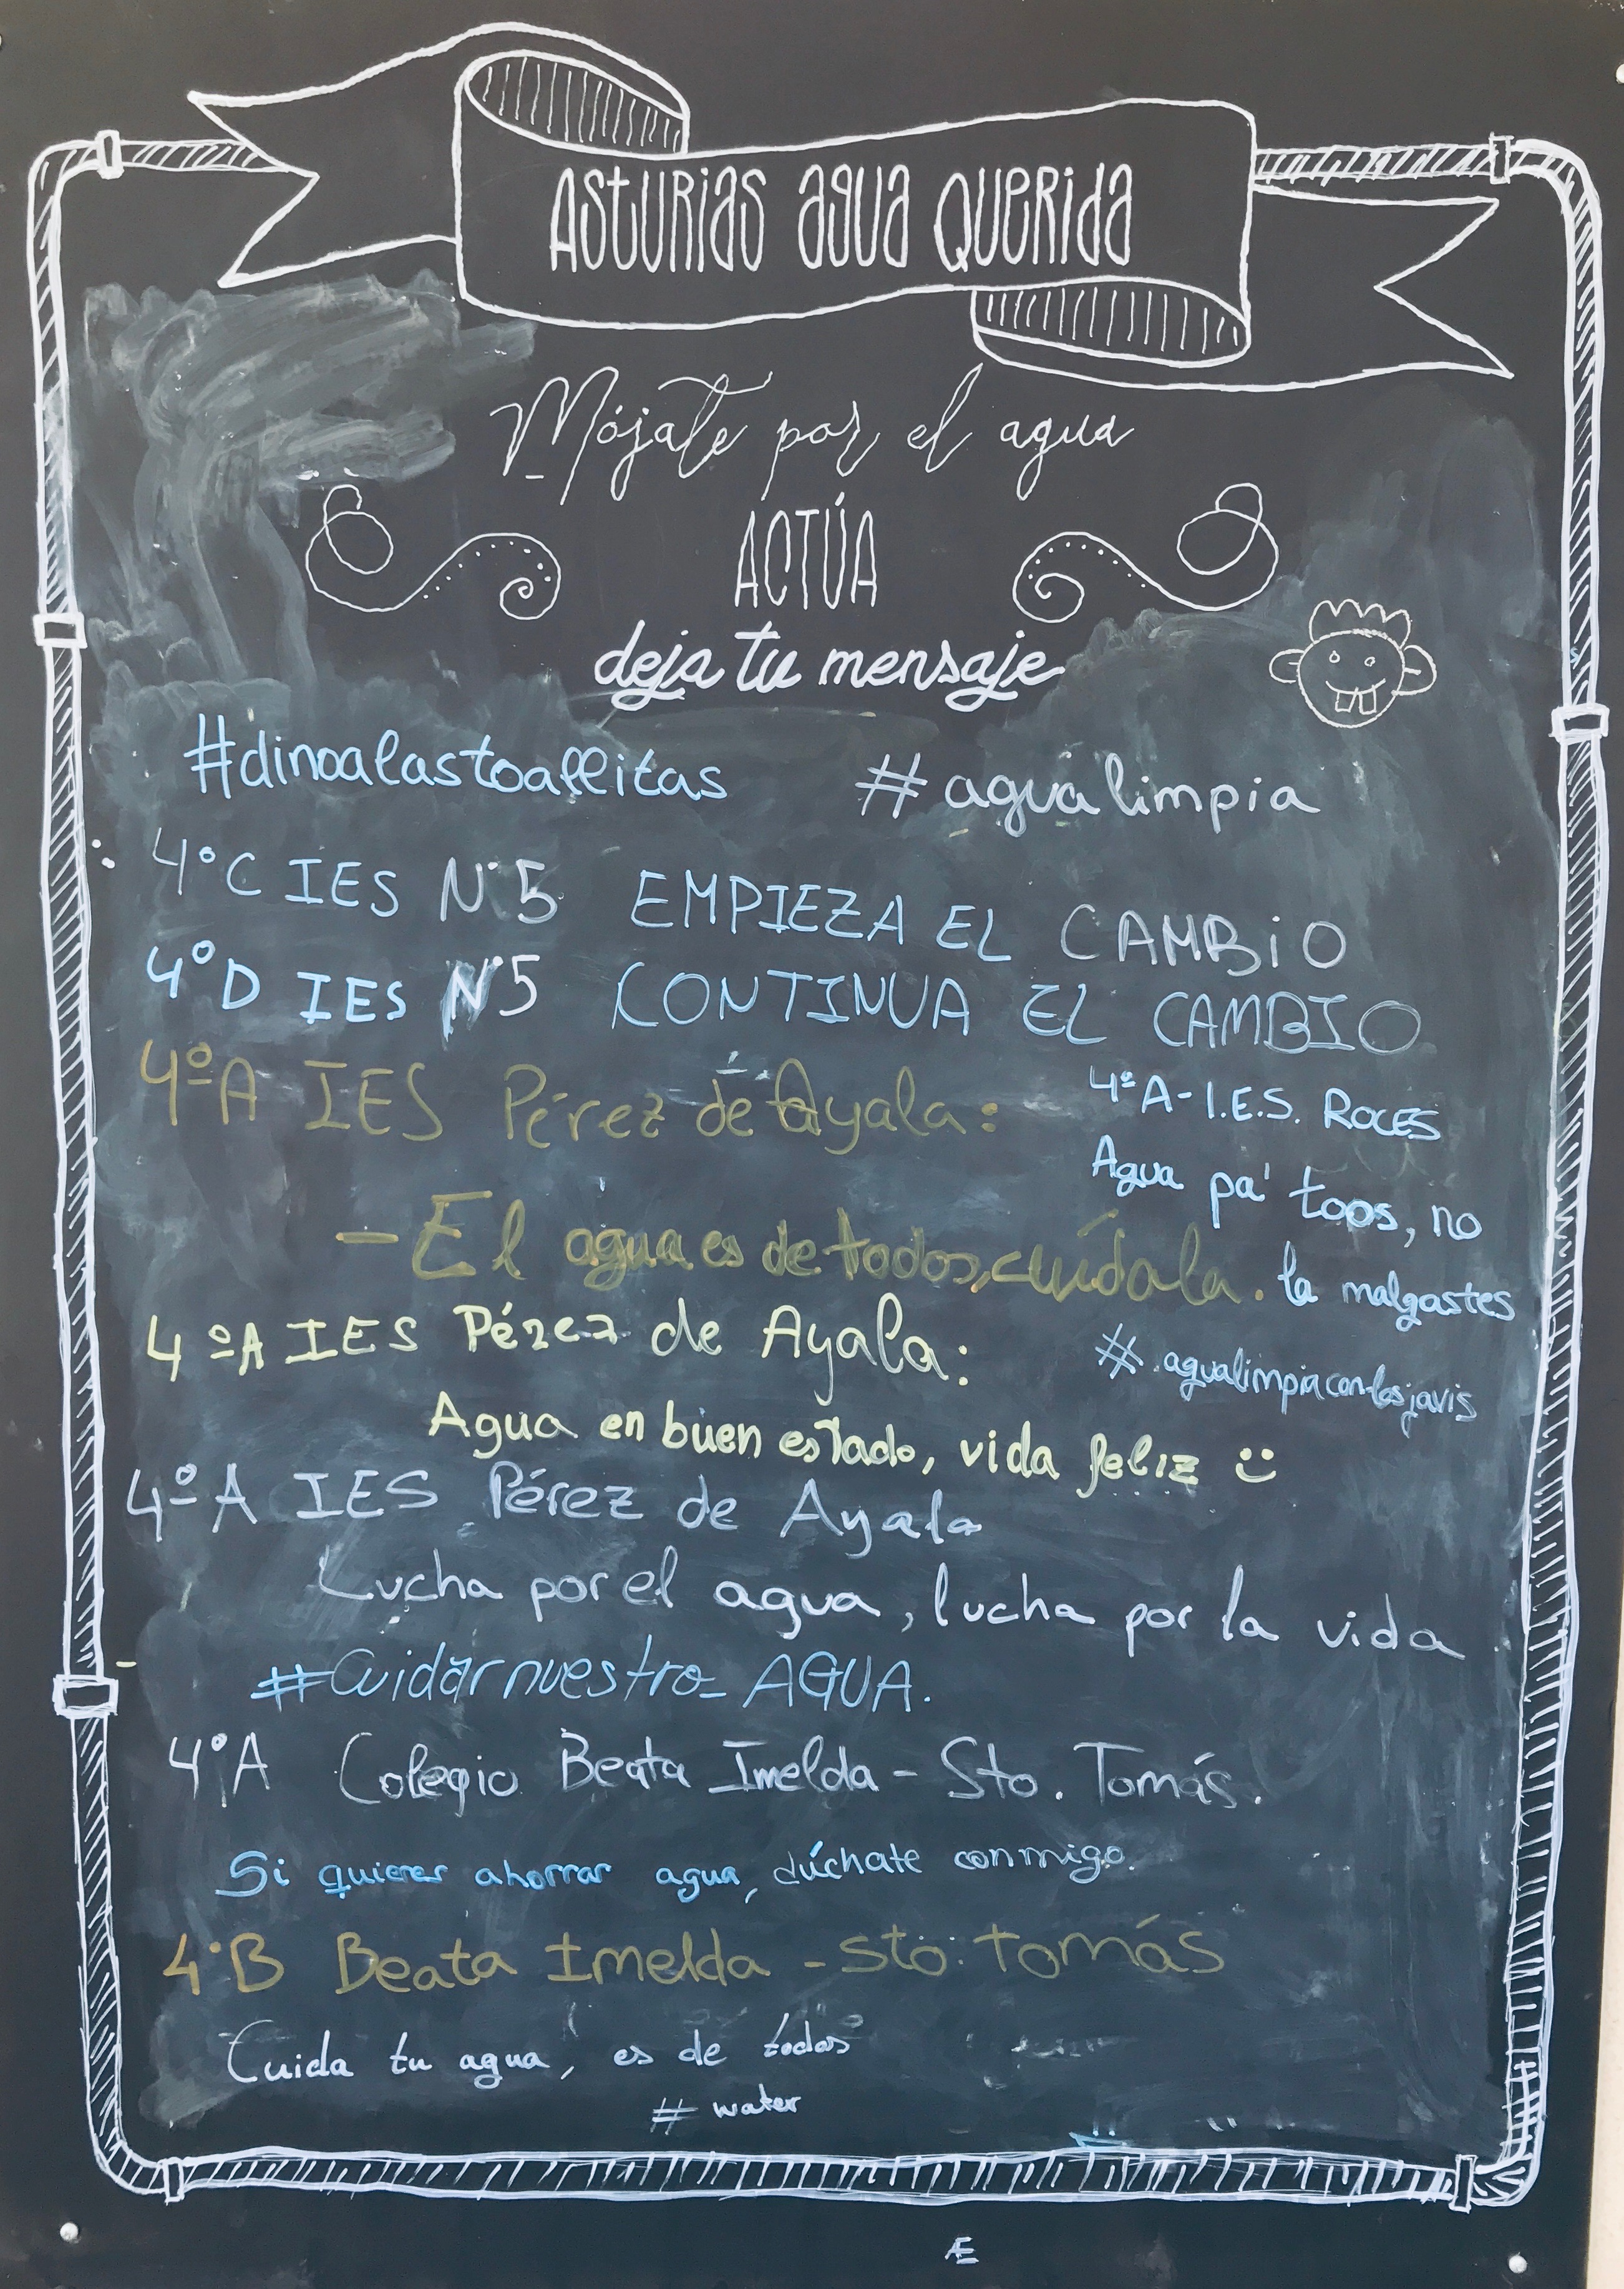 ASTURIAS AGUA QUERIDA
Mójate por el agua
ACTÚA
deja tu mensaje
#dinoalastoallitas # agua limpia
4°C IES Nº5 EMPIEZA EL CAMBiO
4°D IES Nº5 CONTINUA EL CAMBIO
4ºA IES Pérez de Ayala:
- El agua es de todos, cuídala.
4ºA - I.E.S. ROCES
Agua pa' toos, no
la malgastes
# agualimpiaconlosjavis
4ºA IES Pérez de Ayala:
Agua en buen estado, vida feliz ü
4ºA IES Pérez de Ayala
Lucha por el agua, lucha por la vida
#Cuidarnuestra AGUA.
4°A Colegio Beata Imelda - Sto. Tomás.
Si quieres ahorrar agua, dúchate conmigo.
4°B Beata Imelda - Sto. Tomás
Cuida tu agua, es de todos
# water
Æ